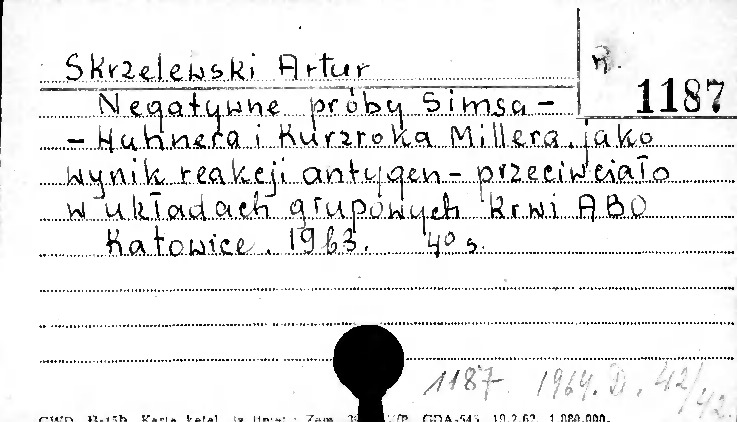 Skrzelewski Artur
R.
1187
Negatywne próby Simsa -
- Huhnera i Kurzroka Millera, jako
wynik reakcji antygen - przeciwciało
w układach grupowych krwi ABO
Katowice. 1963. 40 s.
1187 1964. D. 42/42.
GDA-545 19.2.62 1.000.000.